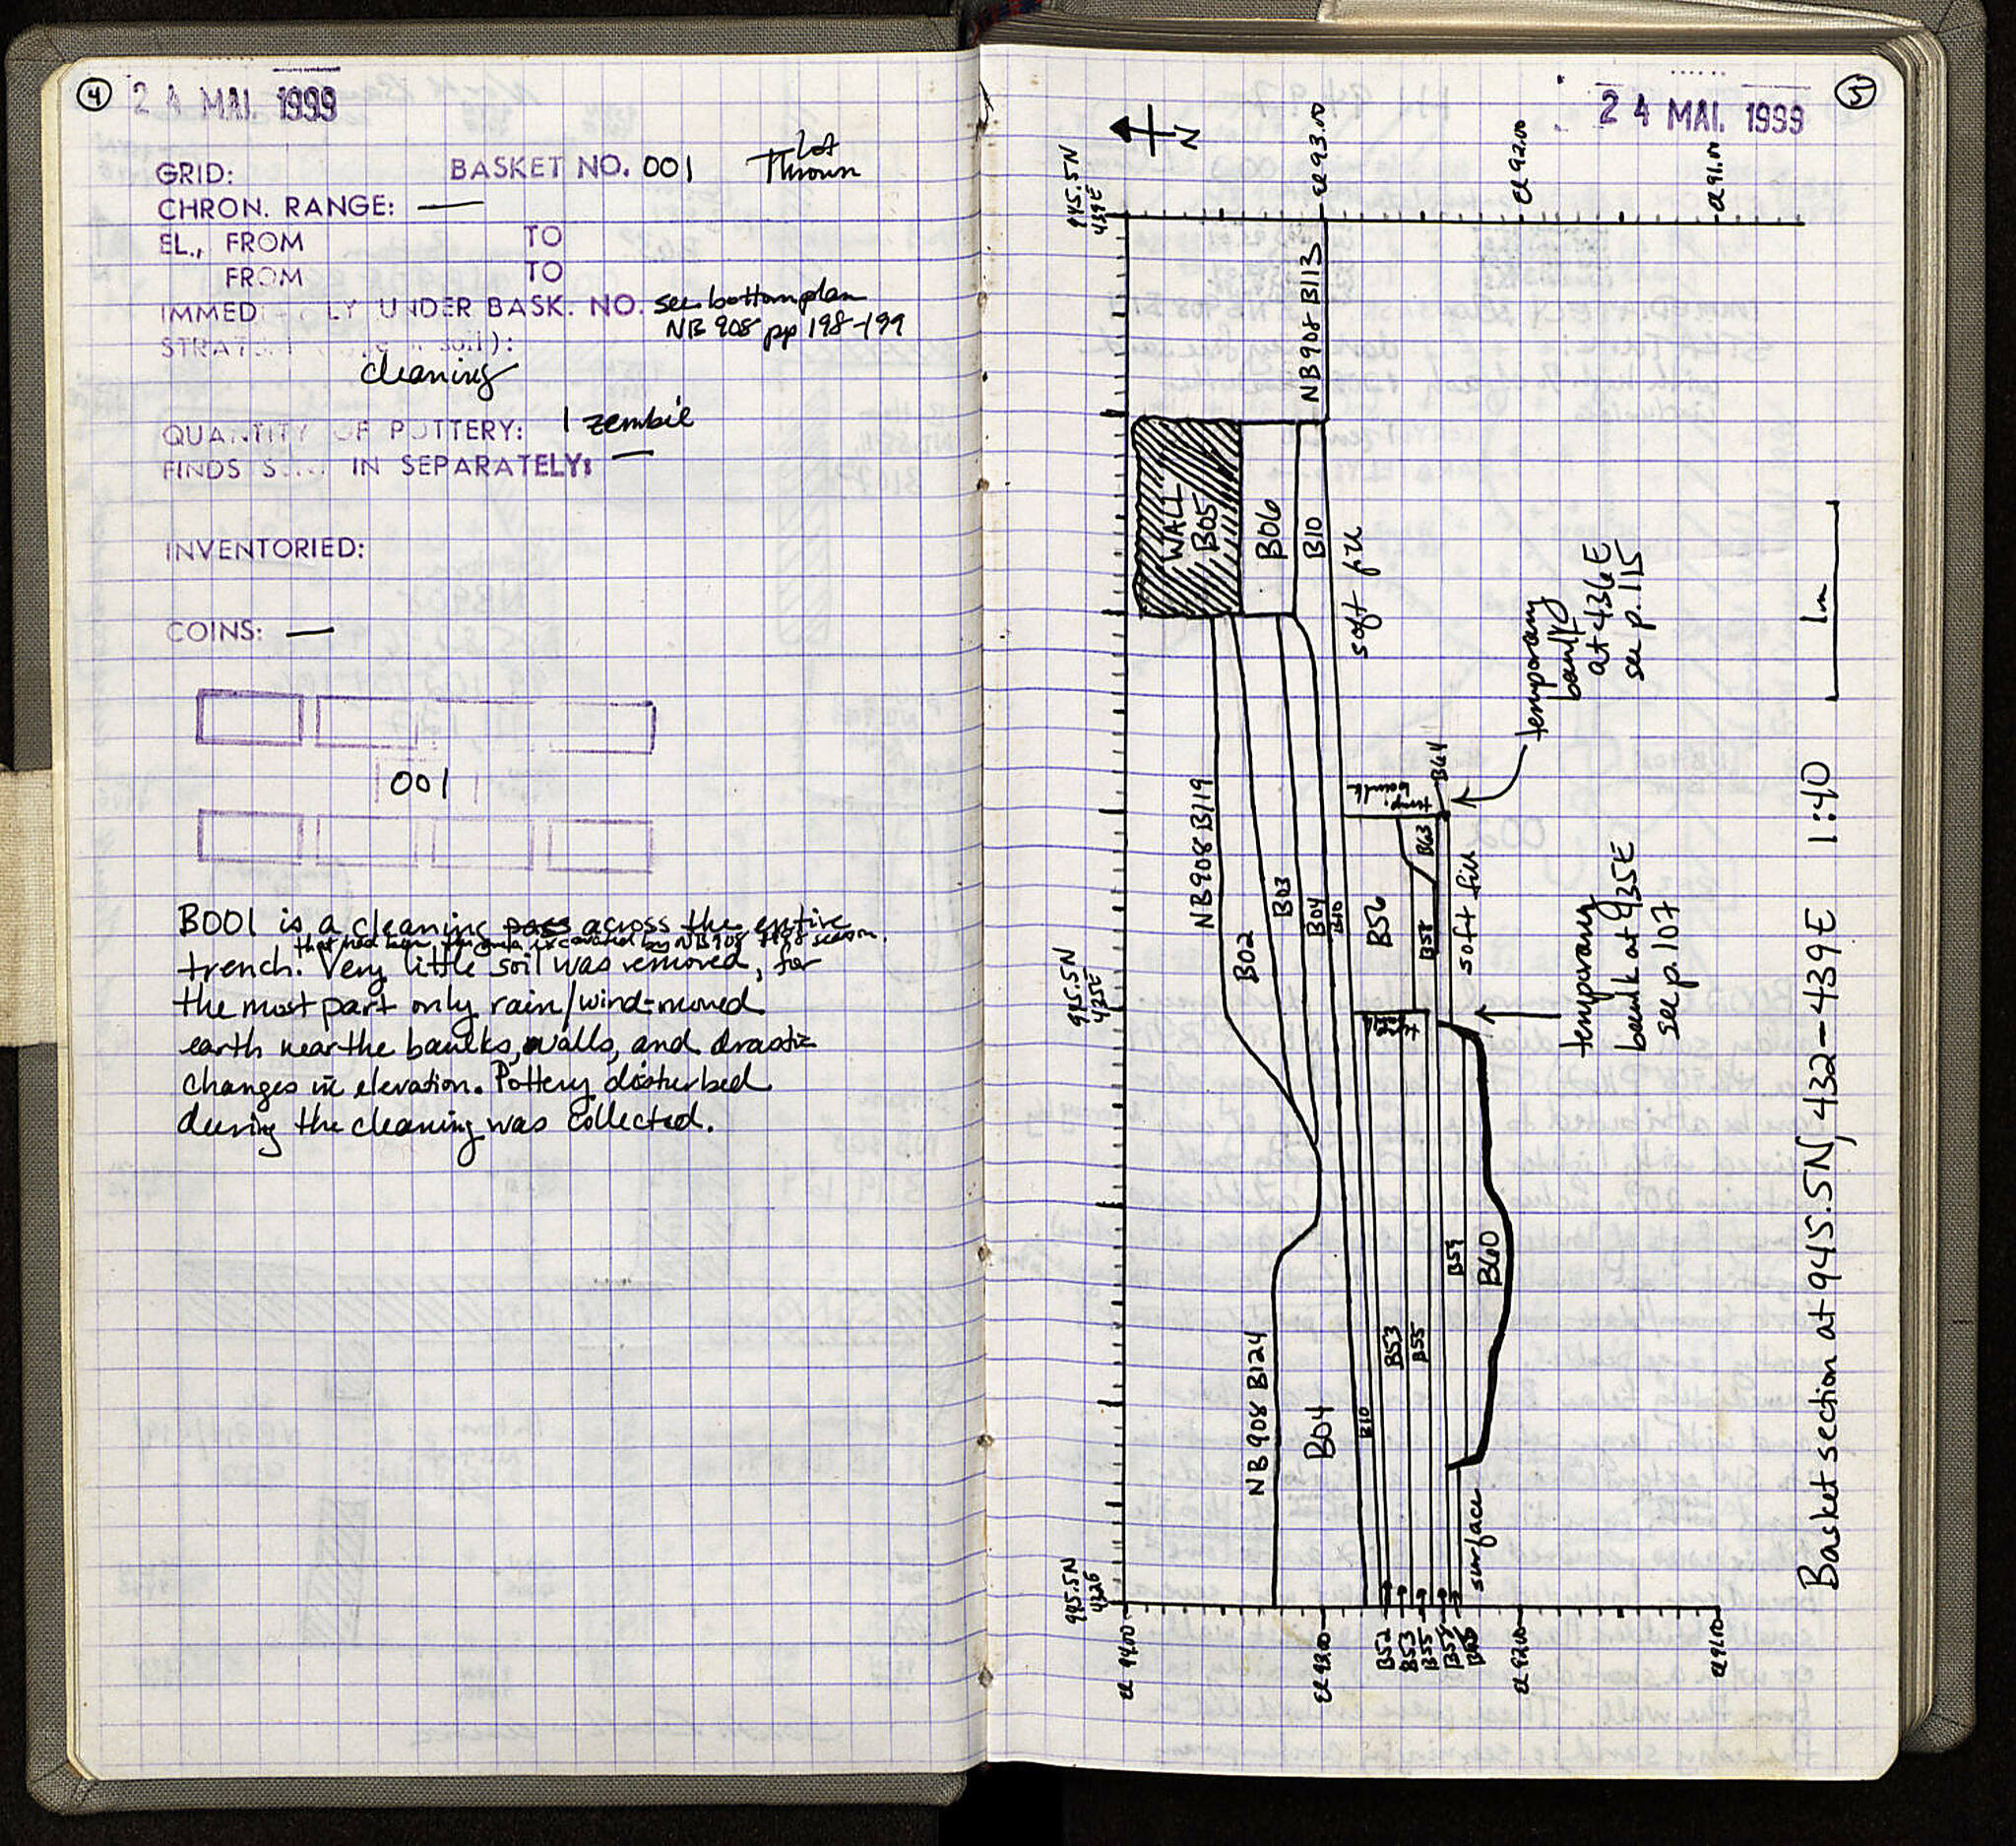 4
24 MAI. 1999
GRID: BASKET NO. 001 Lot
Thrown
CHRON. RANGE: —
EL., FROM TO
FROM TO
IMMED LY UNDER BASK. NO. see bottom plan
NB 908 pp 198-199
STRAT soil):
cleaning
QUANTITY OF POTTERY: 1 zembil
FINDS S... IN SEPARATELY: —
INVENTORIED:
COINS: —
001
B001 is a cleaning pass across the entire
that had been excavated by NB908 1998 season.
trench. Very little soil was removed, for
the most part only rain/wind-moved
earth near the baulks, walls, and drastic
changes in elevation. Pottery disturbed
during the cleaning was collected.
5
24 MAI. 1999
N
945.5N
439E
el 93.00
el 92.00
el 91.00
NB908 B113
WALL
B05
B06
B10
soft fill
temporary
baulk
at 436E
see p. 115
NB908 B119
B02
B03
B04
B10
temp.
baulk
B64
B63
B56
B58
soft fill
temporary
baulk at 435E
see p. 107
945.5N
435E
B59
B60
B53
B55
NB908 B124
B04
B10
surface
945.5N
432E
el 94.00
el 93.00
B52
B53
B55
B59
el 92.00
el 91.00
1m
Basket section at 945.5N, 432-439E 1:40